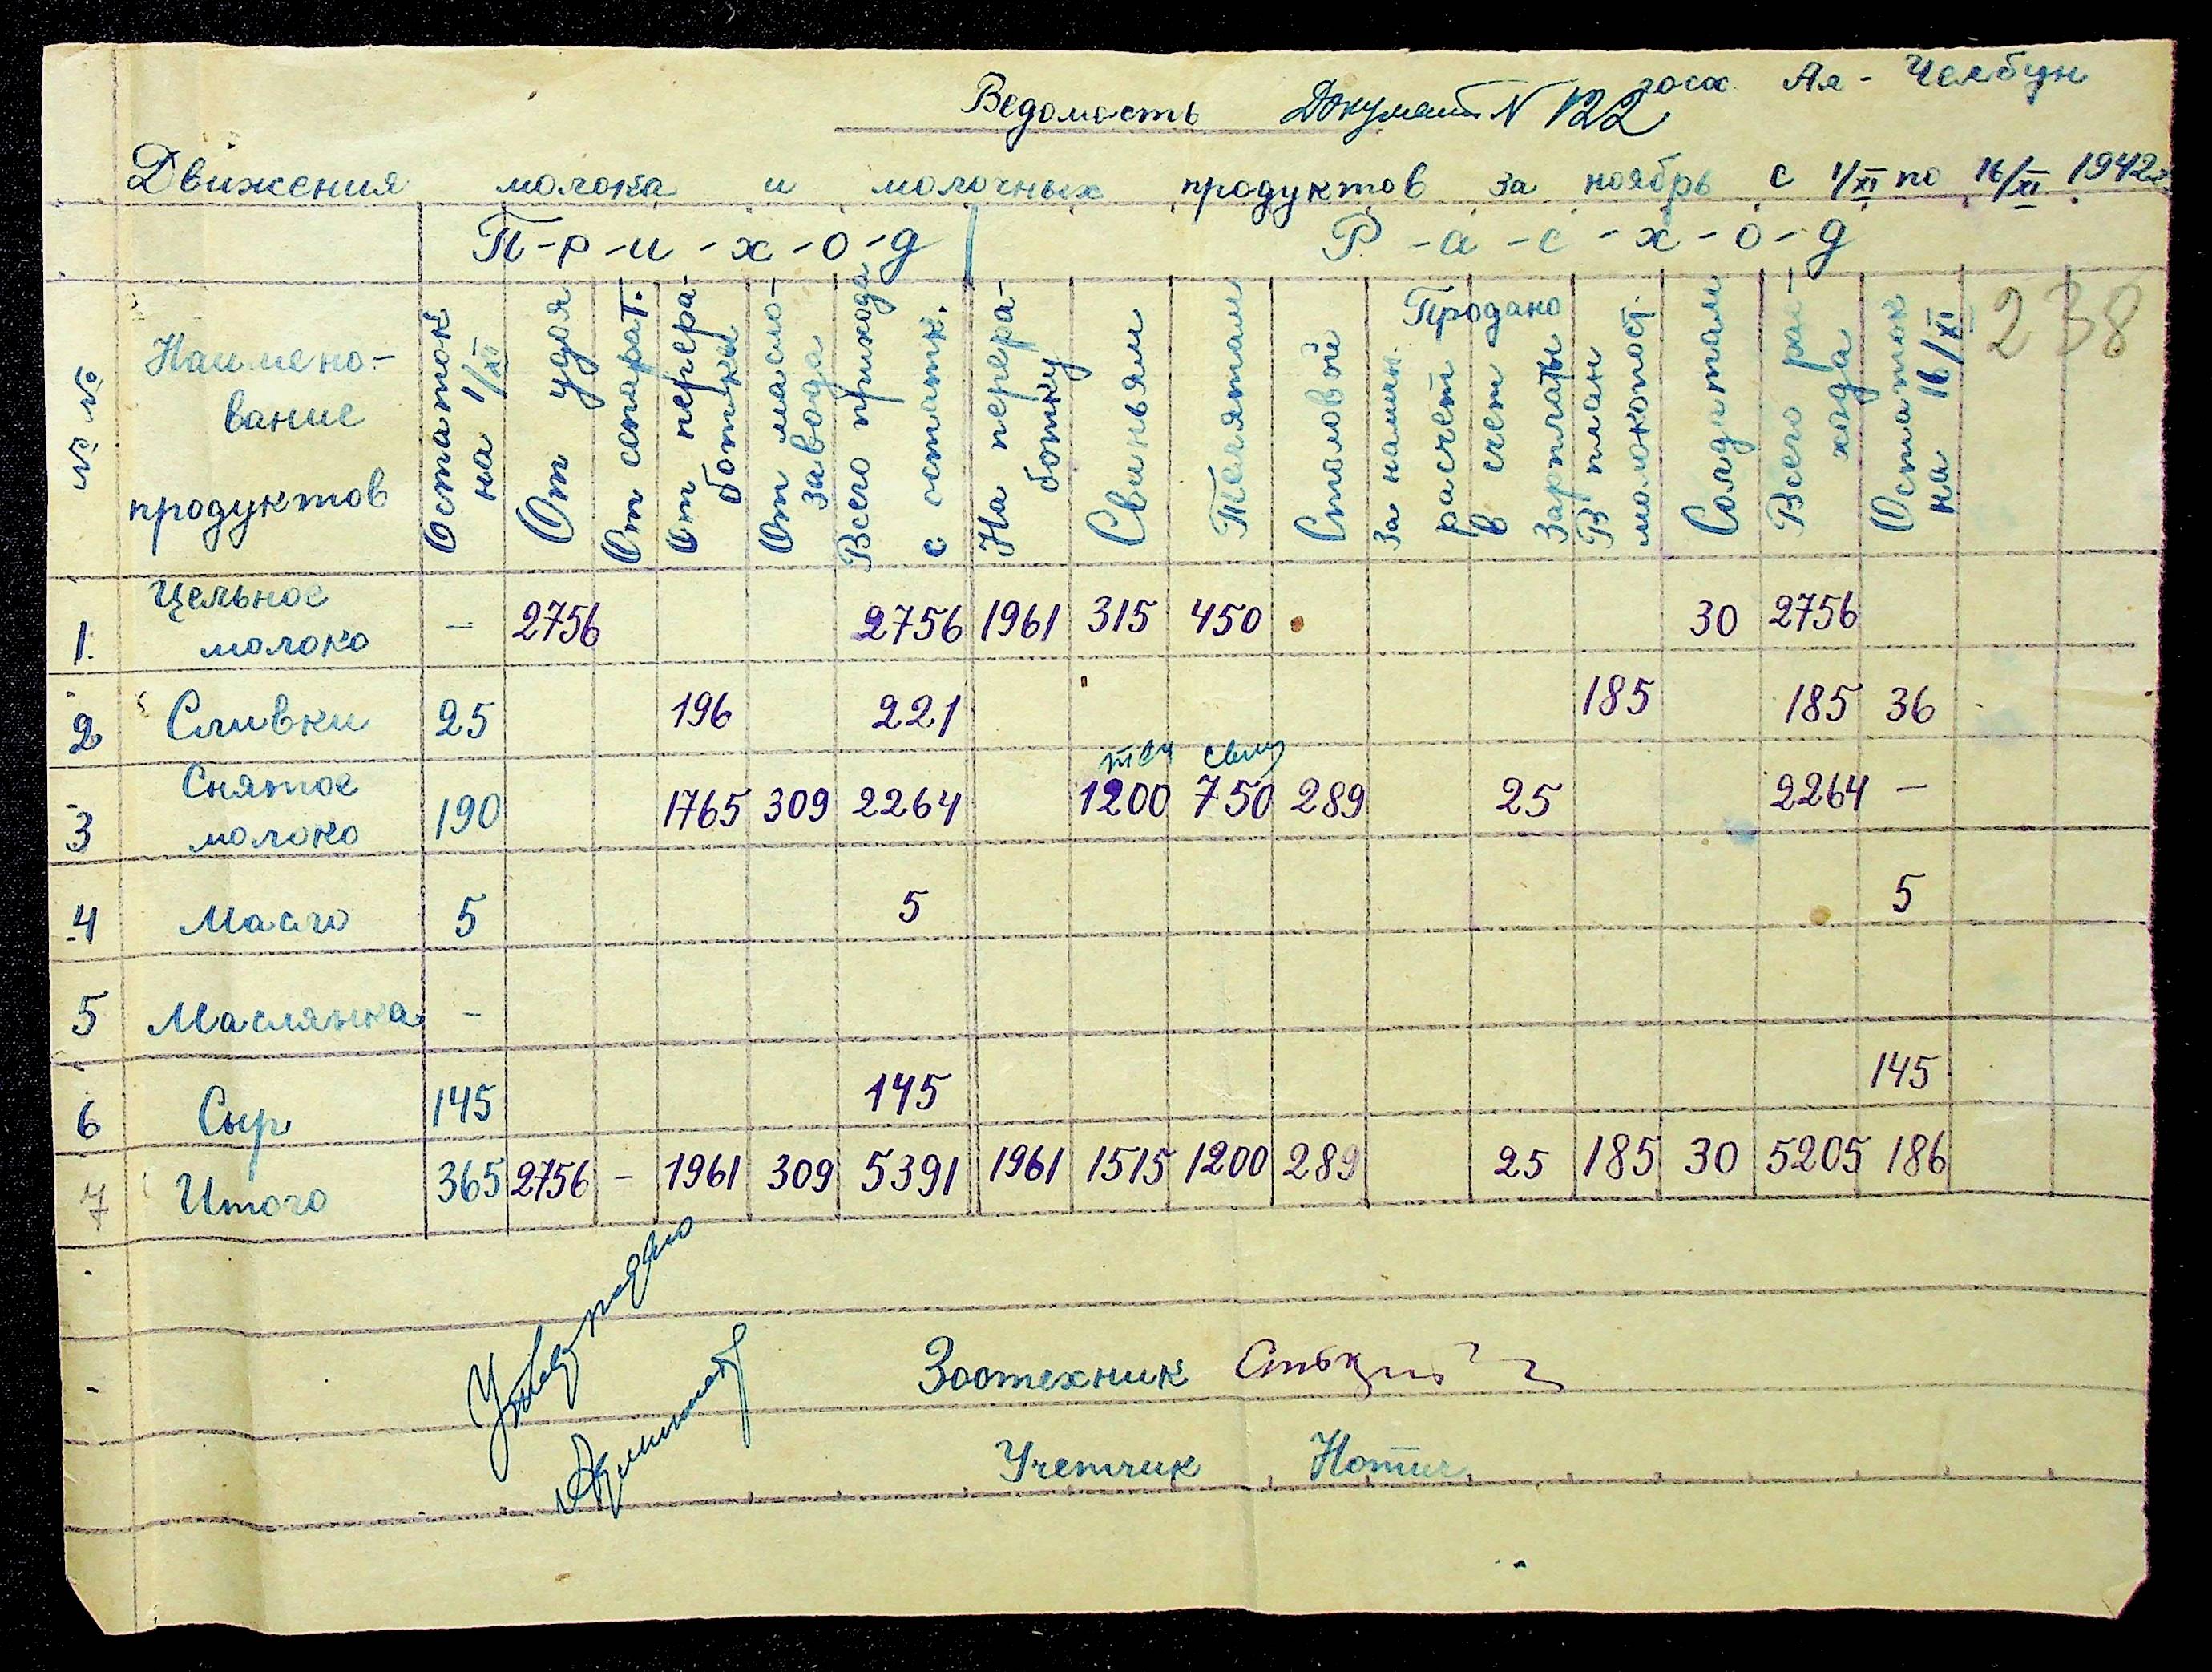 Ведомость Документ N 122 госх. Ая-Челбун
Движения молока и молочных продуктов за ноябрь с 1/XI по 16/XI 1942г
П-р-и-х-о-д Р-а-с-х-о-д
№ № Наимено-вание продуктов Остаток на 1/XI От удоя От сепарат. От перера-ботки От масло-завода Всего прихода с остатк. На перера-ботку Свиньям Телятам Столовой Продано За налич. расчет в счет Зарплаты В план молокопост. Солдатам Всего рас-хода Остаток на 16/XI 238
1. Цельное молоко – 2756 2756 1961 315 450 30 2756
2 Сливки 25 196 221 185 185 36
тел свин
3 Снятое молоко 190 1765 309 2264 1200 750 289 25 2264 –
4 Масло 5 5 5
5 Маслянка –
6 Сыр 145 145 145
7 Итого 365 2756 – 1961 309 5391 1961 1515 1200 289 25 185 30 5205 186
Зоотехник
Учетчик